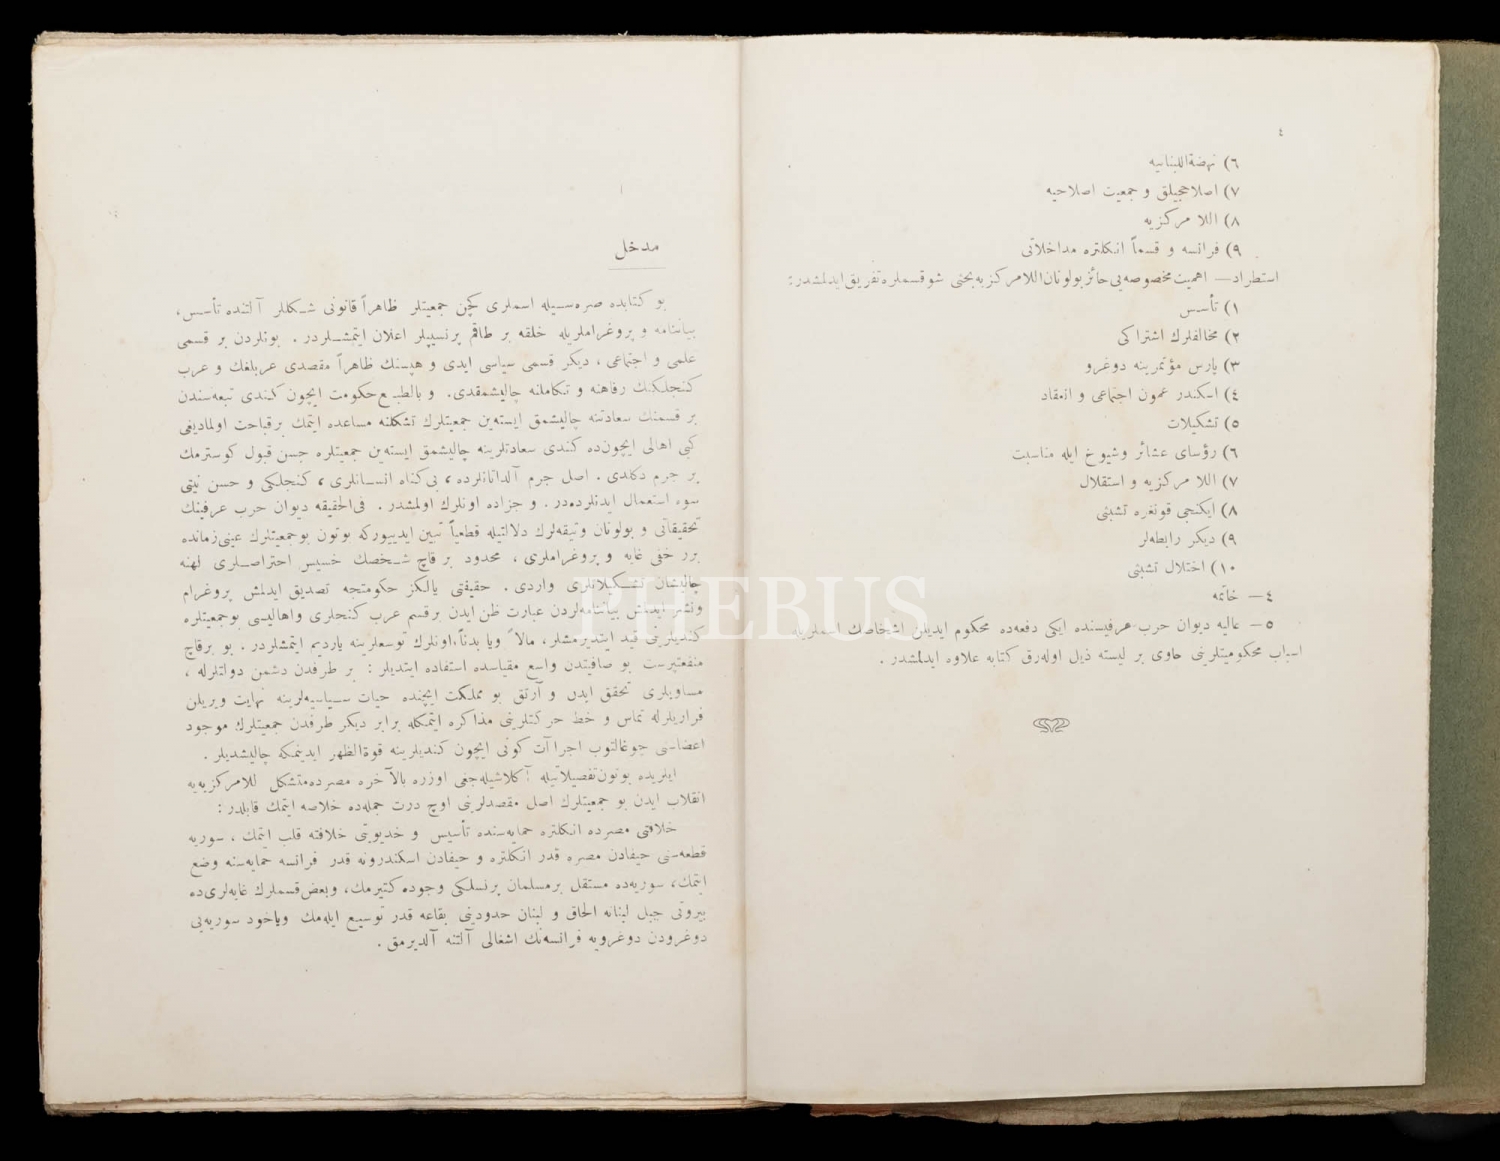 ٤
٦) نهضة‌اللبنانیه
٧) اصلاحجیلق و جمعیت اصلاحیه
٨) اللا مرکزیه
٩) فرانسه و قسماً انکلتره مداخلاتی
استطراد — اهمیت مخصوصه‌یی حائز بولونان اللامرکزیه بحثی شو قسملره تفریق ایدلمشدر:
١) تأسس
٢) مخالفلرك اشتراکی
٣) پارس مؤتمرینه دوغرو
٤) اسکندر عمون اجتماعی و انعقاد
٥) تشکیلات
٦) رؤسای عشائر وشیوخ ایله مناسبت
٧) اللا مرکزیه و استقلال
٨) ایکنجی قونغره تشبثی
٩) دیکر رابطه‌لر
١٠) اختلال تشبثی
٤ — خاتمه
٥ — عالیه دیوان حرب عرفیسنده ایکی دفعه‌ده محکوم ایدیلن اشخاصك اسملریله
اسباب محکومیتلرینی حاوی بر لیسته ذیل اوله‌رق کتابه علاوه ایدلمشدر .
مدخل
بو کتابده صره‌سیله اسملری کچن جمعیتلر ظاهراً قانونی شکللر آلتنده تأسس،
بیاننامه و پروغراملریله خلقه بر طاقم پرنسیپلر اعلان ایتمشلردر . بونلردن بر قسمی
علمی و اجتماعی ، دیکر قسمی سیاسی ایدی و هپسنك ظاهراً مقصدی عربلغك و عرب
کنجلکنك رفاهنه و تکاملنه چالیشمقدی. و بالطبع حکومت ایچون کندی تبعه‌سندن
بر قسمنك سعادتنه چالیشمق ایسته‌ین جمعیتلرك تشکلنه مساعده ایتمك برقباحت اولمادیغی
کبی اهالی ایچون‌ده کندی سعادتلرینه چالیشمق ایسته‌ین جمعیتلره حسن قبول کوسترمك
بر جرم دکلدی . اصل جرم آلداتانلرده ، بی‌کناه انسانلری ، کنجلکی و حسن نیتی
سوء استعمال ایدنلرده‌در . و جزاده اونلرك اولمشدر . فی‌الحقیقه دیوان حرب عرفینك
تحقیقاتی و بولونان وثیقه‌لرك دلالتیله قطعیاً تبین ایدییورکه بوتون بوجمعیتلرك عینی‌زمانده
برر خفی غایه و پروغراملری ، محدود بر قاچ شخصك خسیس احتراصلری لهنه
چالیشان تشکیلاتلری واردی . حقیقتی یالکز حکومتجه تصدیق ایدلمش پروغرام
ونشر ایدلمش بیاننامه‌لردن عبارت ظن ایدن برقسم عرب کنجلری واهالیسی بوجمعیتلره
کندیلرینی قید ایتدیرمشلر، مالاً ویا بدناً،اونلرك توسعلرینه یاردیم ایتمشلردر . بو برقاچ
منفعتپرست بو صافیتدن واسع مقیاسده استفاده ایتدیلر : بر طرفدن دشمن دولتلرله ،
مساویلری تحقق ایدن و آرتق بو مملکت ایچنده حیات سیاسیه‌لرینه نهایت ویریلن
فراریلرله تماس و خط حرکتلرینی مذاکره ایتمکله برابر دیکر طرفدن جمعیتلرك موجود
اعضاسنی چوغالتوب اجراآت کونی ایچون کندیلرینه قوةالظهر ایدینمکه چالیشدیلر .
ایلریده بوتون‌تفصیلاتیله آکلاشیله‌جغی اوزره بالآخره مصرده‌متشکل للامرکزیه‌یه
انقلاب ایدن بو جمعیتلرك اصل مقصدلرینی اوچ درت جمله‌ده خلاصه ایتمك قابلدر :
خلافتی مصرده انکلتره حمایه‌سنده تأسیس و خدیویتی خلافته قلب ایتمك ، سوریه
قطعه‌سنی حیفادن مصره قدر انکلتره و حیفادن اسکندرونه قدر فرانسه حمایه‌سنه وضع
ایتمك، سوریه‌ده مستقل برمسلمان پرنسلکی وجوده کتیرمك، وبعض‌قسملرك غایه‌لری‌ده
بیروتی جبل لبنانه الحاق و لبنان حدودینی بقاعه قدر توسیع ایله‌مك ویاخود سوریه‌یی
دوغرودن دوغرویه فرانسه‌نك اشغالی آلتنه آلدیرمق .
PHEBUS